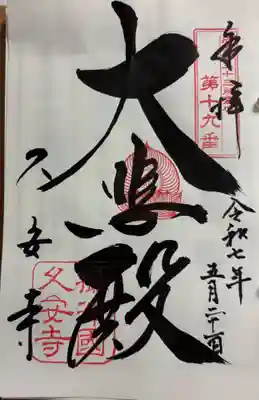 奉拝
第十九番
令和七年
五月二十一日
大悲殿
久安寺
國
久安寺